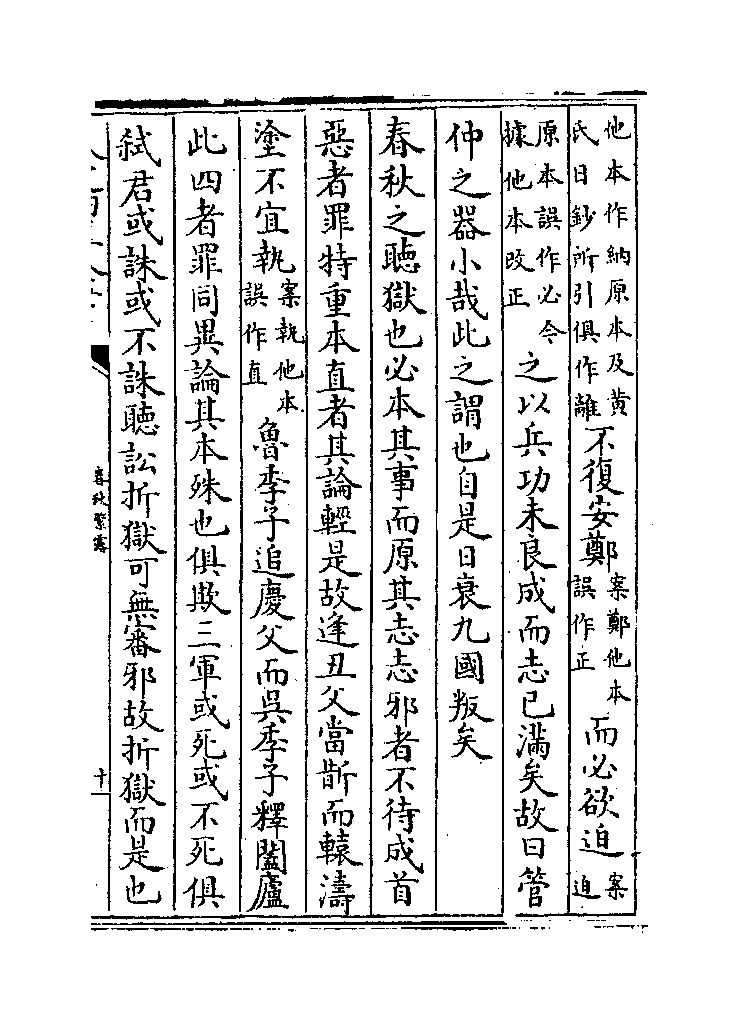 他本作納原本及黃氏日鈔所引俱作離不復安鄭案鄭他本誤作正而必欲迫案迫
原本誤作必令據他本改正之以兵功未良成而志已滿矣故曰管
仲之器小哉此之謂也自是日衰九國叛矣
春秋之聽獄也必本其事而原其志志邪者不待成首
惡者罪特重本直者其論輕是故逢丑父當斮而轅濤
塗不宜執案執他本誤作直魯季子追慶父而吳季子釋闔廬
此四者罪同異論其本殊也俱欺三軍或死或不死俱
弒君或誅或不誅聽訟折獄可無審邪故折獄而是也
春秋繁露
十